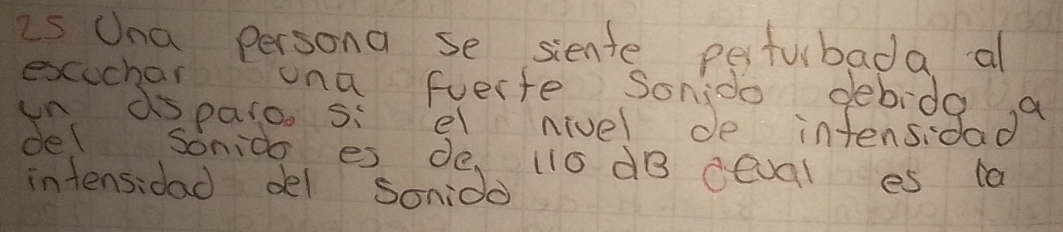 25 Una persona se siente perturbada al
escuchar una fuerte sonido debido a
un disparo. si el nivel de intensidad
del sonido es de 110 dB ceual es la
intensidad del sonido